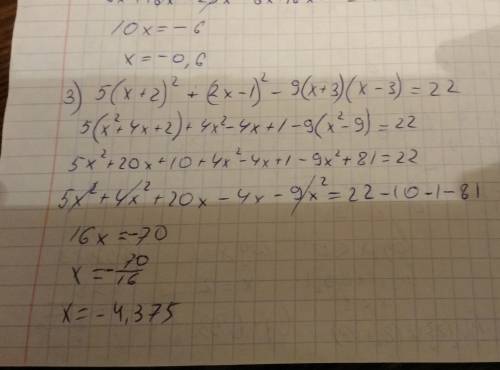 10x=-6
x=-0,6
3) 5(x+2)²+(2x-1)²-9(x+3)(x-3)=22
5(x²+4x+2)+4x²-4x+1-9(x²-9)=22
5x²+20x+10+4x²-4x+1-9x²+81=22
5x²+4x²+20x-4x-9x²=22-10-1-81
16x=-70
x=-70/16
x=-4,375